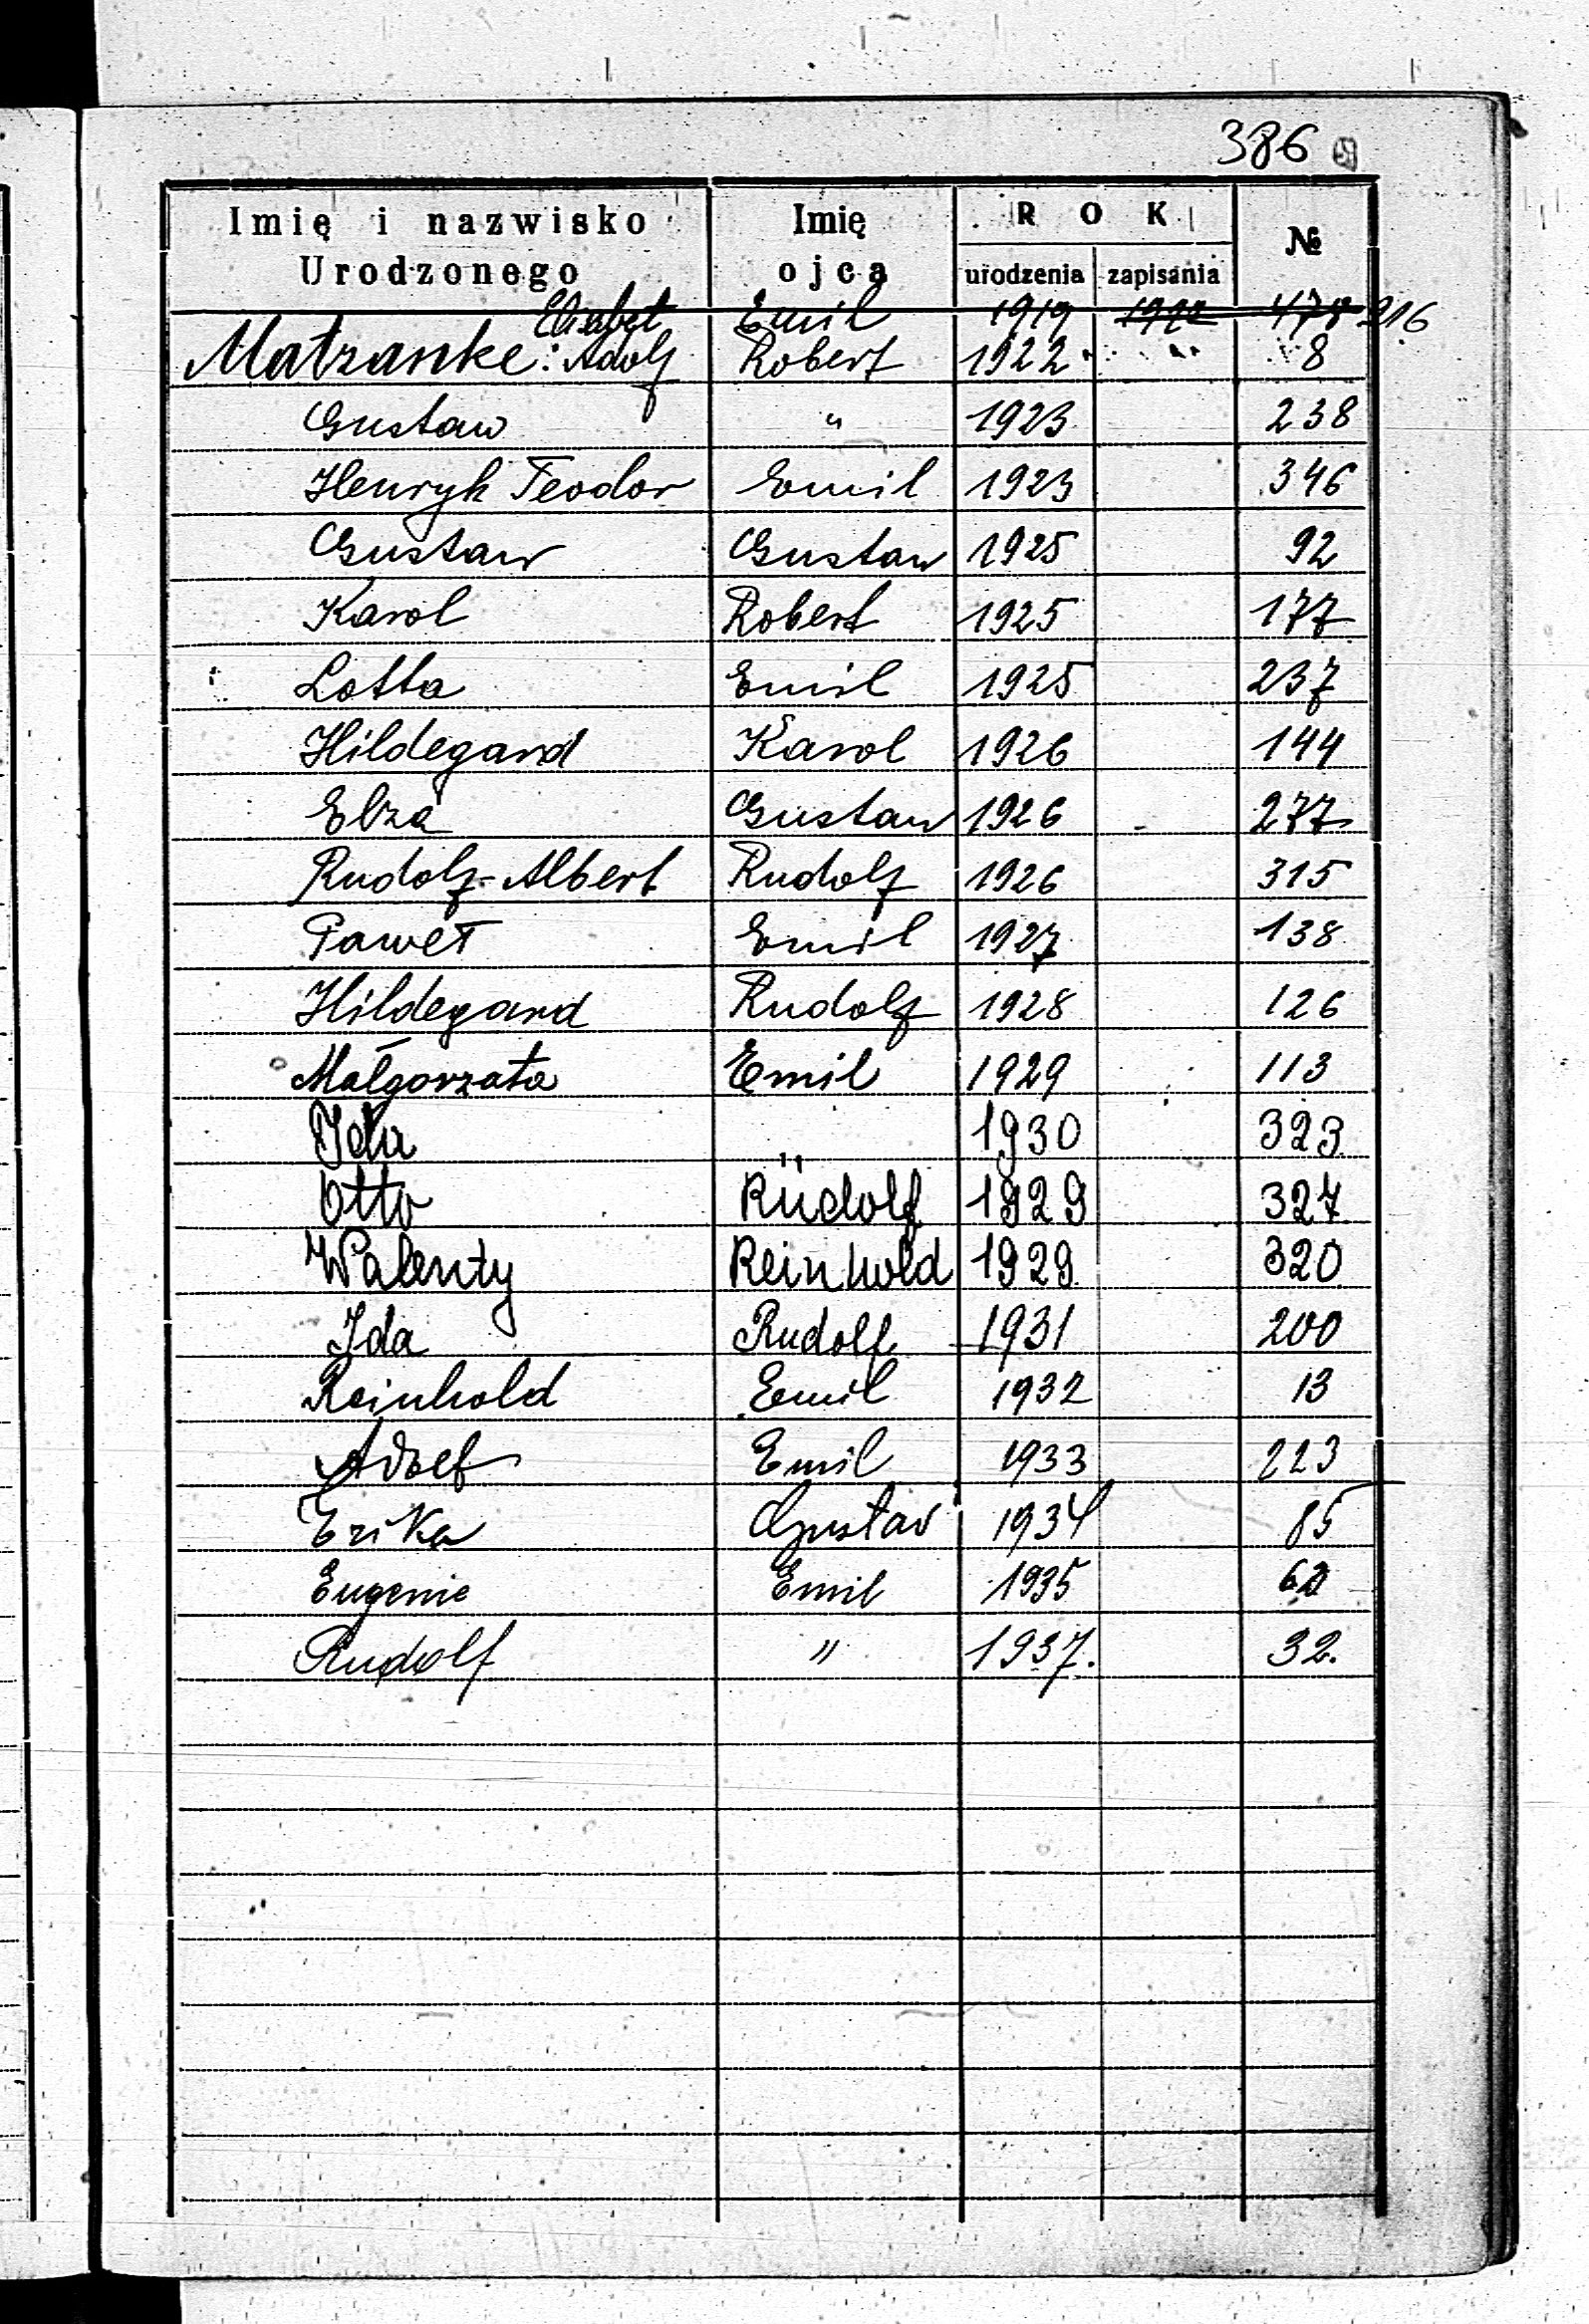 386
Imię i nazwisko Urodzonego Imię ojca ROK urodzenia zapisania №
Elisabet Emil 1919 1922 478 216
Matzanke: Adolf Robert 1922 " 8
Gustaw " 1923 238
Henryk Teodor Emil 1923 346
Gustaw Gustaw 1925 92
Karol Robert 1925 177
Lotta Emil 1925 237
Hildegard Karol 1926 144
Elza Gustaw 1926 277
Rudolf-Albert Rudolf 1926 315
Paweł Emil 1927 138
Hildegard Rudolf 1928 126
Małgorzata Emil 1929 113
Ida " 1930 323
Otto Rudolf 1929 327
Walenty Reinhold 1929 320
Ida Rudolf 1931 200
Reinhold Emil 1932 13
Adolf Emil 1933 223
Erika Gustav 1934 85
Eugenie Emil 1935
Rudolf " 1937. 32.